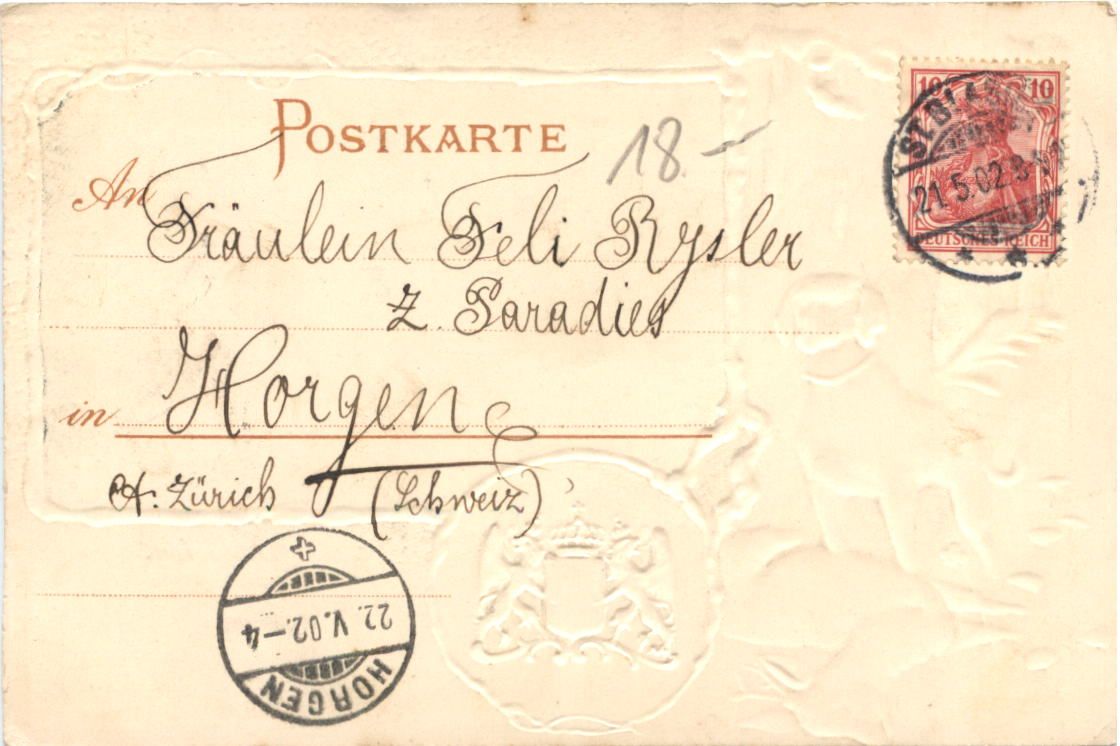 POSTKARTE
18.-
10 10
ST. BLA
21.5.02.8-
DEUTSCHES REICH
An Fräulein Feli Rysler
z. Paradies
in Horgen
Kt. Zürich (Schweiz)
22.V.02.-4
HORGEN